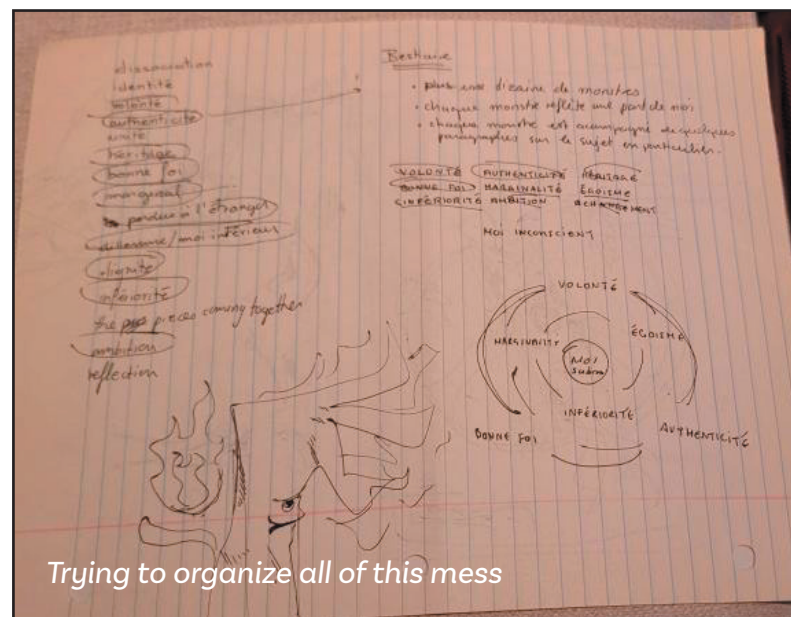 dissociation
identité
volonté
authenticité
unité
héritage
bonne foi
marginal
perdu à l'étranger
/moi intérieur
infériorité
the pieces coming together
ambition
reflection
Bestiaire
• plus une dizaine de monstres
• chaque monstre reflète une part de moi
• chaque monstre est acompagné de quelques
paragraphes sur le sujet en particulier.
VOLONTÉ AUTHENTICITÉ HÉRITAGE
BONNE FOI MARGINALITÉ ÉGOISME
INFÉRIORITÉ AMBITION
MOI INCONSCIENT
VOLONTÉ
MARGINALITÉ
ÉGOISME
MOI
INFÉRIORITÉ
BONNE FOI
AUTHENTICITÉ
Trying to organize all of this mess